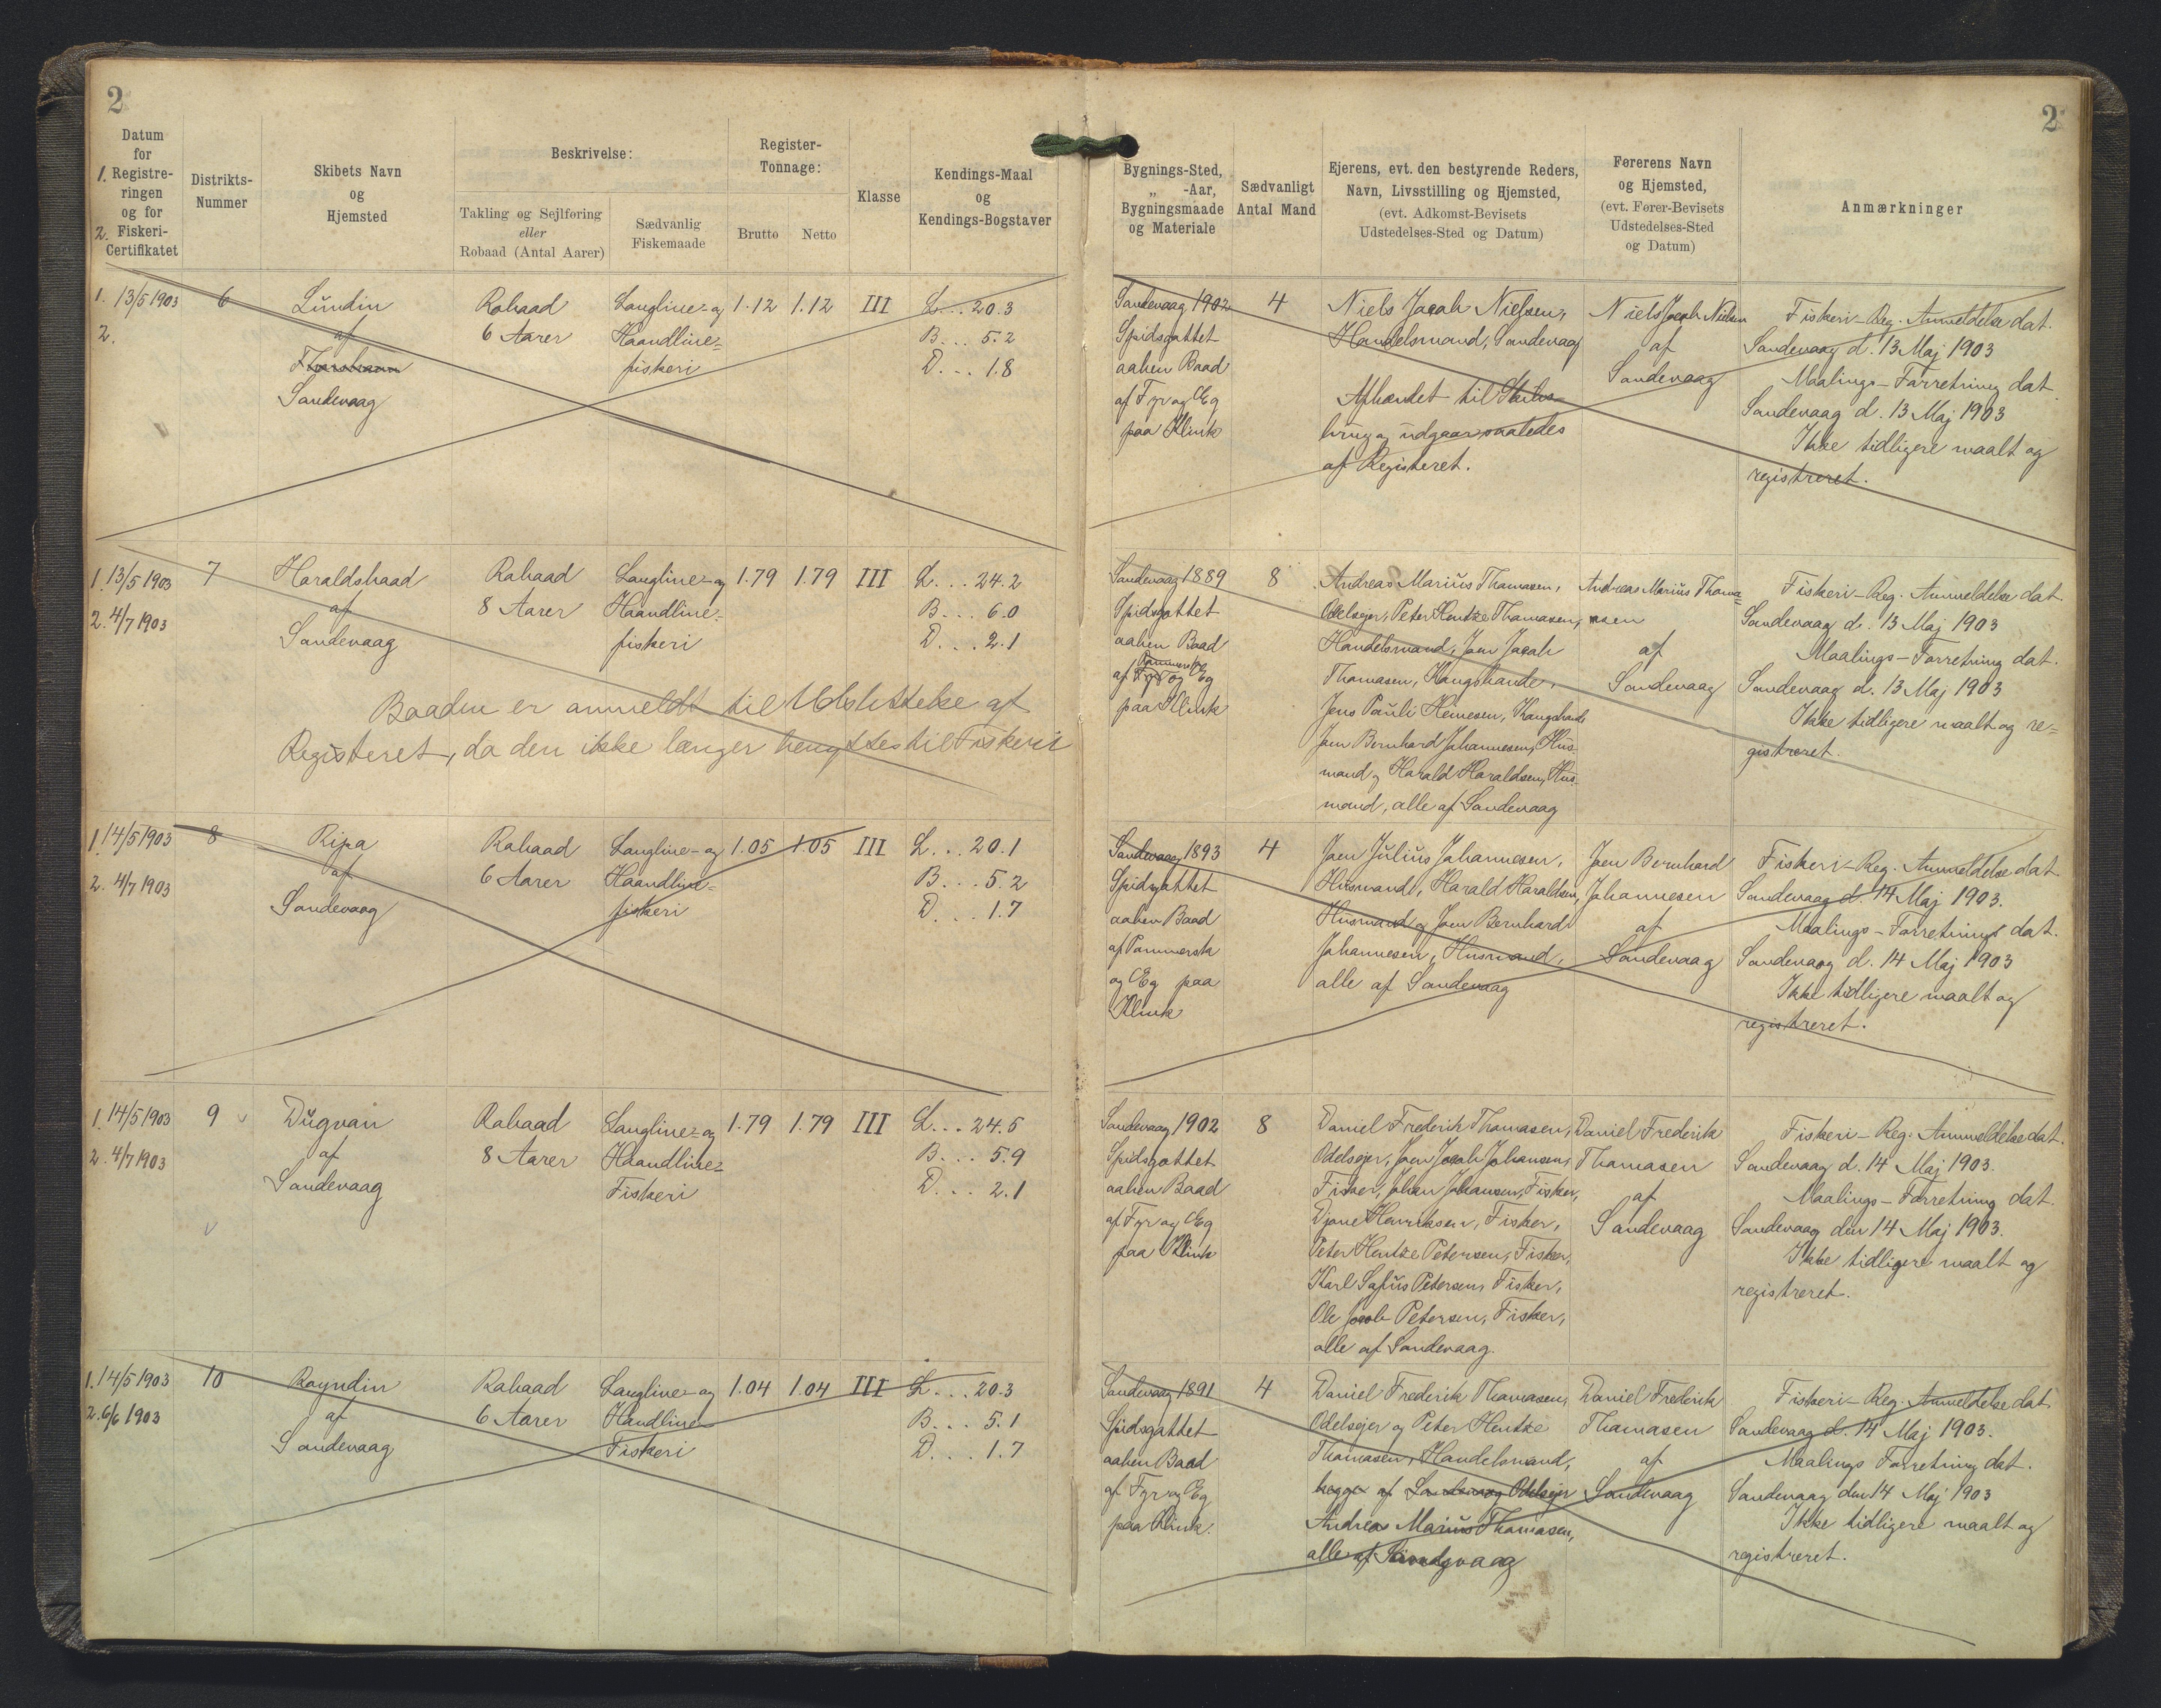 2
2
Datum
for
1. Registre-
ringen
og for
2. Fiskeri-
Certifikatet
Distrikts-
Nummer
Skibets Navn
og
Hjemsted
Beskrivelse:
Takling og Sejlføring
eller
Robaad (Antal Aarer)
Sædvanlig
Fiskemaade
Register-
Tonnage:
Brutto
Netto
Klasse
Kendings-Maal
og
Kendings-Bogstaver
Bygnings-Sted,
„ -Aar,
Bygningsmaade
og Materiale
Sædvanligt
Antal Mand
Ejerens, evt. den bestyrende Reders,
Navn, Livsstilling og Hjemsted,
(evt. Adkomst-Bevisets
Udstedelses-Sted og Datum)
Førerens Navn
og Hjemsted,
(evt. Fører-Bevisets
Udstedelses-Sted
og Datum)
Anmærkninger
1. 13/5 1903
2.
6
Lundin
af
Thorshavn
Sandevaag
Robaad
6 Aarer
Langline- og
Haandline-
fiskeri
1.12
1.12
III
L... 20.3
B... 5.2
D... 1.8
Sandevaag 1902
Spidsgattet
aaben Baad
af Fyr og Eg
paa Klink
4
Niels Jacob Nielsen,
Handelsmand, Sandevaag
Afhændet til
brug og udgaar saaledes
af Registeret.
Niels Jacob Nielsen
af
Sandevaag
Fiskeri-Reg. Anmeldelse dat.
Sandevaag d. 13 Maj 1903
Maalings-Forretning dat.
Sandevaag d. 13 Maj 1903
Ikke tidligere maalt og
registreret.
1. 13/5 1903
2. 4/7 1903
7
Haraldsbaad
af
Sandevaag
Robaad
8 Aarer
Langline- og
Haandline-
fiskeri
1.79
1.79
III
L... 24.2
B... 6.0
D... 2.1
Baaden er anmeldt til Udslettelse af
Registeret, da den ikke længer benyttes til Fiskeri
Sandevaag 1889
Spidsgattet
aaben Baad
Pommersk
af Fyr og Eg
paa Klink
8
Andreas Marius Thomasen,
Odelsejer, Peter Hentze Thomasen,
Handelsmand, Joen Jacob
Thomasen, Kongsbonde,
Jens Pauli Heinesen, Kongsbonde
Joen Bernhard Johannesen, Hus-
mand og Harald Haraldsen, Hus-
mand, alle af Sandevaag
Andreas Marius Thoma-
sen
af
Sandevaag
Fiskeri-Reg. Anmeldelse dat.
Sandevaag d. 13 Maj 1903
Maalings-Forretning dat.
Sandevaag d. 13 Maj 1903
Ikke tidligere maalt og re-
gistreret.
1. 14/5 1903
2. 4/7 1903
8
Ripa
af
Sandevaag
Robaad
6 Aarer
Langline- og
Haandline-
fiskeri
1.05
1.05
III
L... 20.1
B... 5.2
D... 1.7
Sandevaag 1893
Spidsgattet
aaben Baad
af Pommersk
og Eg paa
Klink
4
Joen Julius Johannesen,
Husmand, Harald Haraldsen,
Husmand og Joen Bernhard
Johannesen, Husmand,
alle af Sandevaag
Joen Bernhard
Johannesen
af
Sandevaag
Fiskeri-Reg. Anmeldelse dat.
Sandevaag d. 14 Maj 1903.
Maalings-Forretning dat.
Sandevaag d. 14 Maj 1903
Ikke tidligere maalt og
registreret.
1. 14/5 1903
2. 4/7 1903
9
Dugvan
af
Sandevaag
Robaad
8 Aarer
Langline- og
Haandline-
Fiskeri
1.79
1.79
III
L... 24.5
B... 5.9
D... 2.1
Sandevaag 1902
Spidsgattet
aaben Baad
af Fyr og Eg
paa Klink
8
Daniel Frederik Thomasen,
Odelsejer, Joen Jacob Johansen,
Fisker, Johan Johansen, Fisker,
Djone Henriksen, Fisker,
Peter Hentze Petersen, Fisker,
Karl Sofus Petersen, Fisker,
Ole Jacob Petersen, Fisker,
alle af Sandevaag.
Daniel Frederik
Thomasen
af
Sandevaag
Fiskeri-Reg. Anmeldelse dat.
Sandevaag d. 14 Maj 1903.
Maalings-Forretning dat.
Sandevaag den 14 Maj 1903.
Ikke tidligere maalt og
registreret.
1. 14/5 1903
2. 6/6 1903
10
Royndin
af
Sandevaag
Robaad
6 Aarer
Langline- og
Handline
Fiskeri
1.04
1.04
III
L... 20.3
B... 5.1
D... 1.7
Sandevaag 1891
Spidsgattet
aaben Baad
af Fyr og Eg
paa Klink.
4
Daniel Frederik Thomasen,
Odelsejer og Peter Hentze
Thomasen, Handelsmand,
begge af Sandevaag Odelsejer
Andreas Marius Thomasen,
alle af Sandevaag
Daniel Frederik
Thomasen
af
Sandevaag
Fiskeri-Reg. Anmeldelse dat.
Sandevaag d. 14 Maj 1903.
Maalings Forretning dat.
Sandevaag den 14 Maj 1903
Ikke tidligere maalt og
registreret.